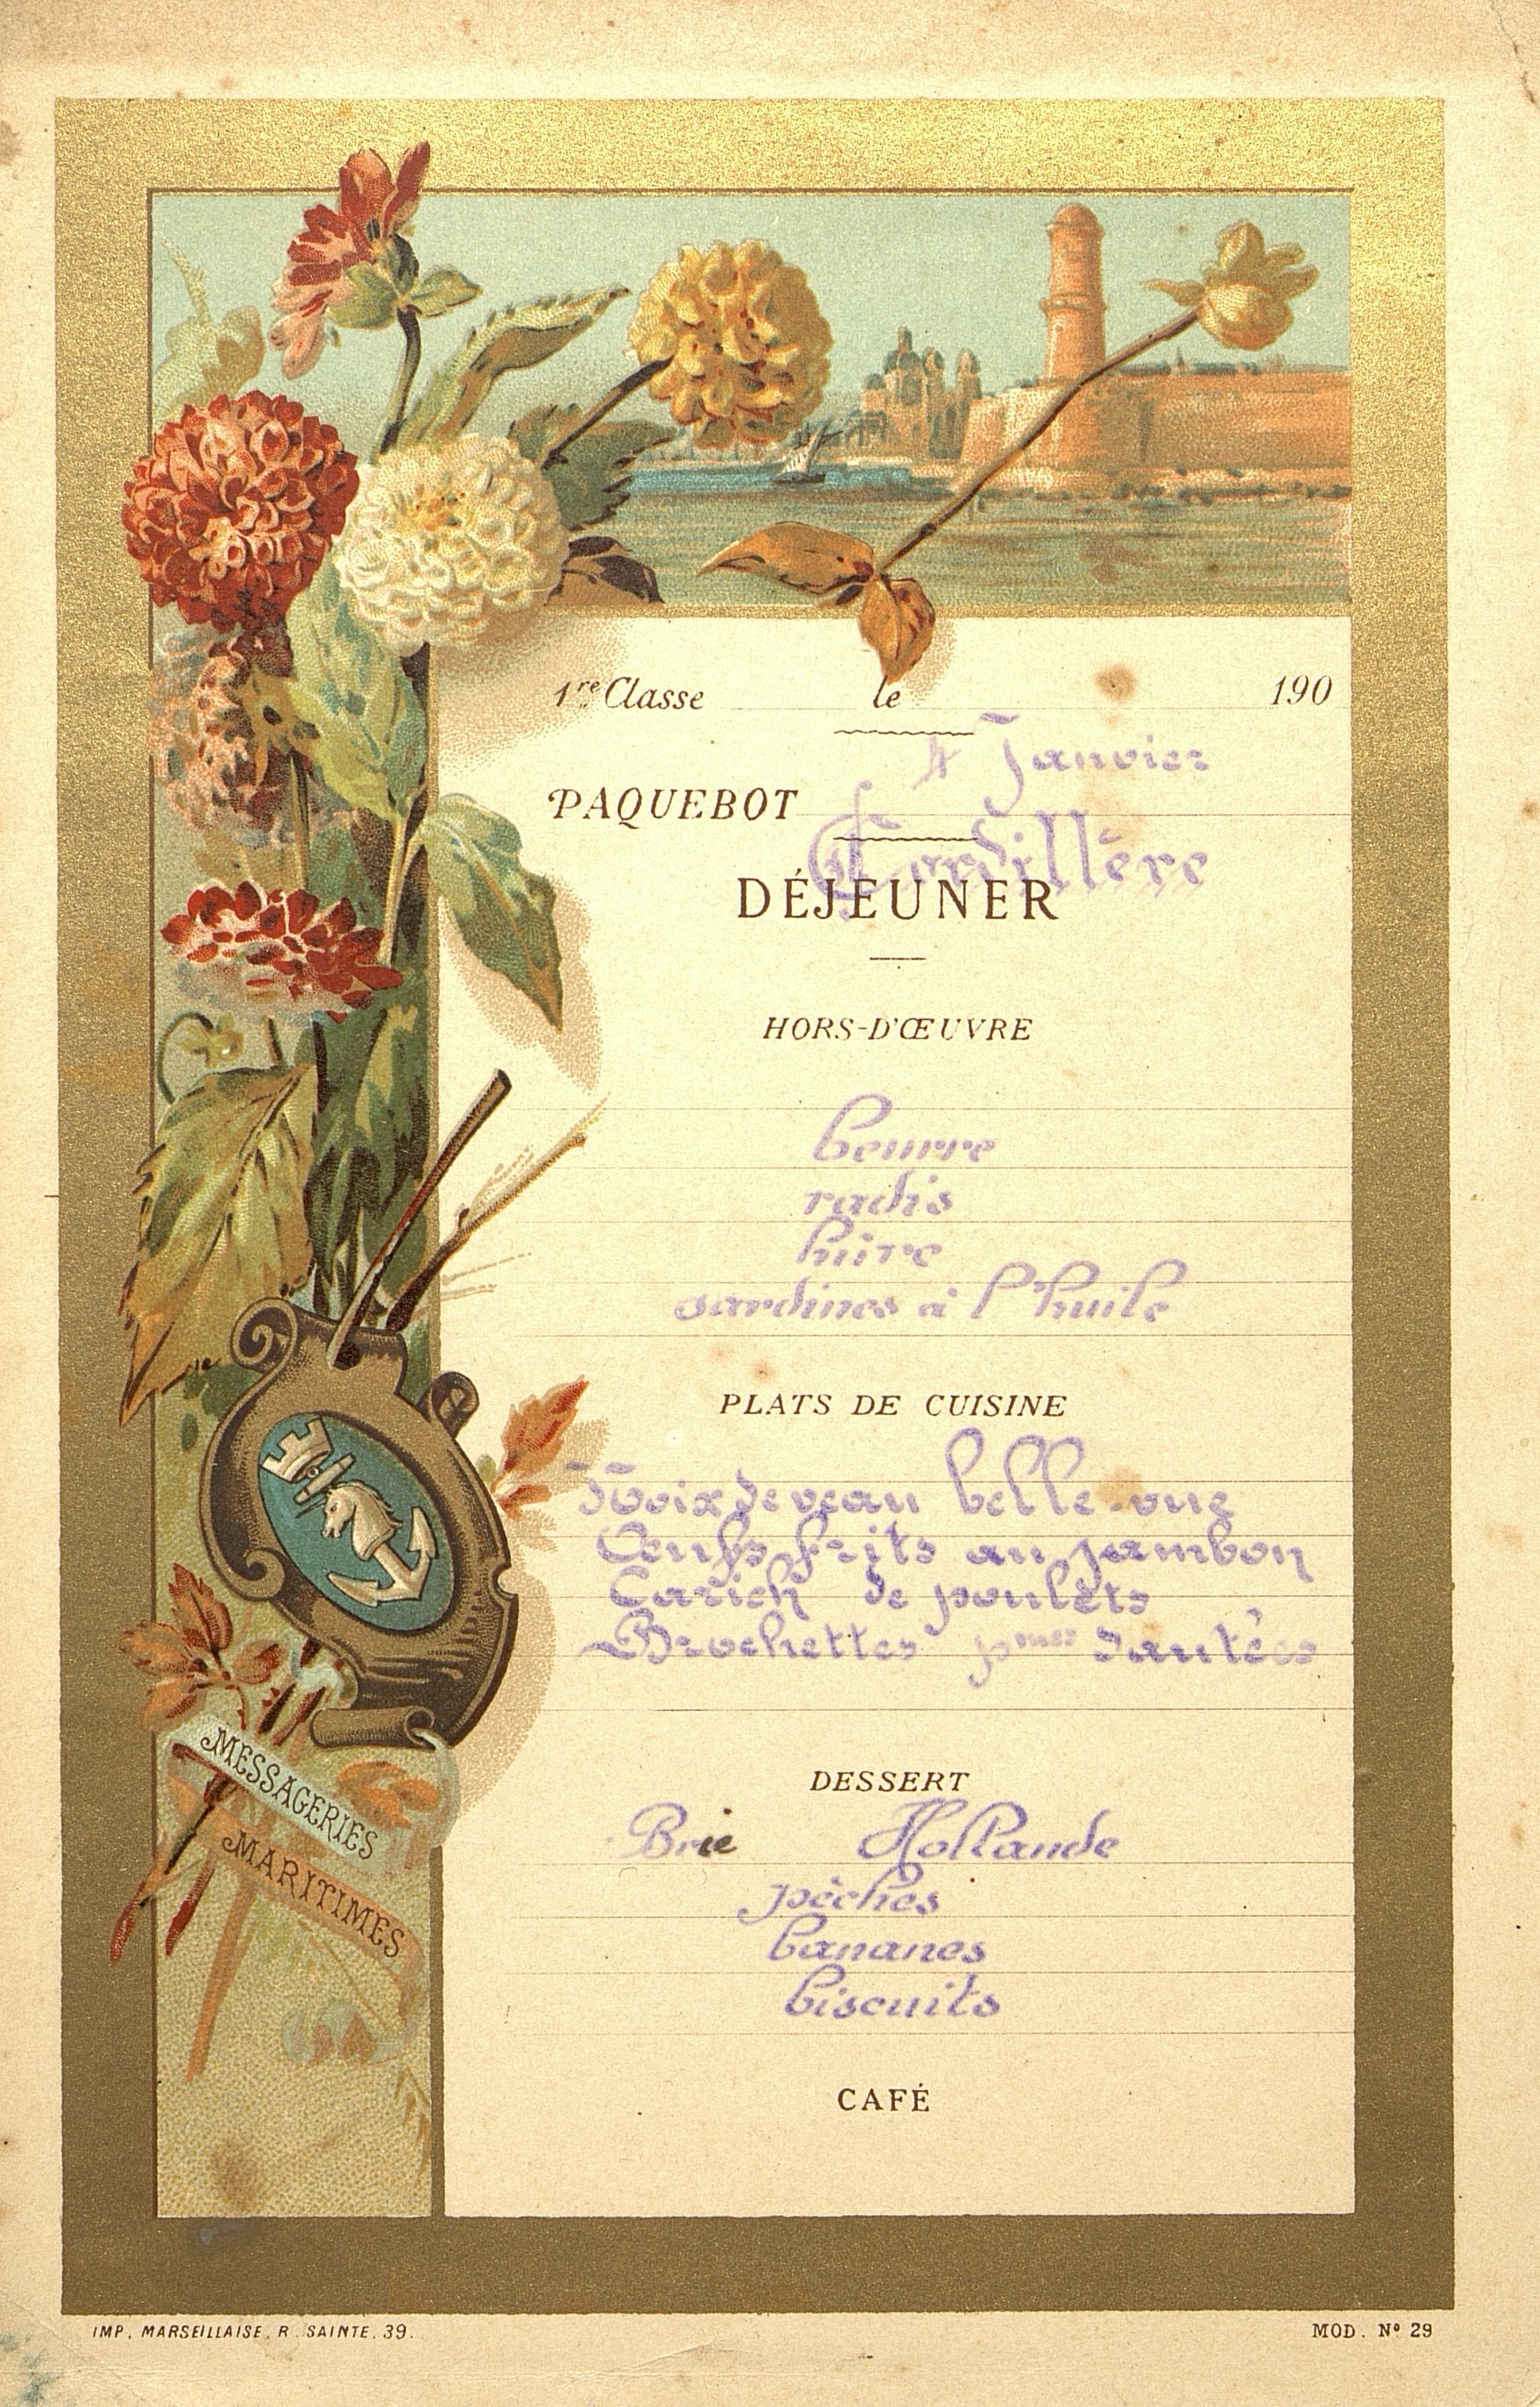 1re Classe le 190
4 Janvier
PAQUEBOT
Cordillère
DÉJEUNER
HORS-D'ŒUVRE
beurre
radis
hure
sardines à l'huile
PLATS DE CUISINE
Noix de veau belle-vue
Œufs frits au jambon
Carich de poulets
Brochettes pmes sautées
DESSERT
Brie Hollande
pêches
bananes
biscuits
CAFÉ
MESSAGERIES
MARITIMES
IMP. MARSEILLAISE. R. SAINTE. 39.
MOD. No 29